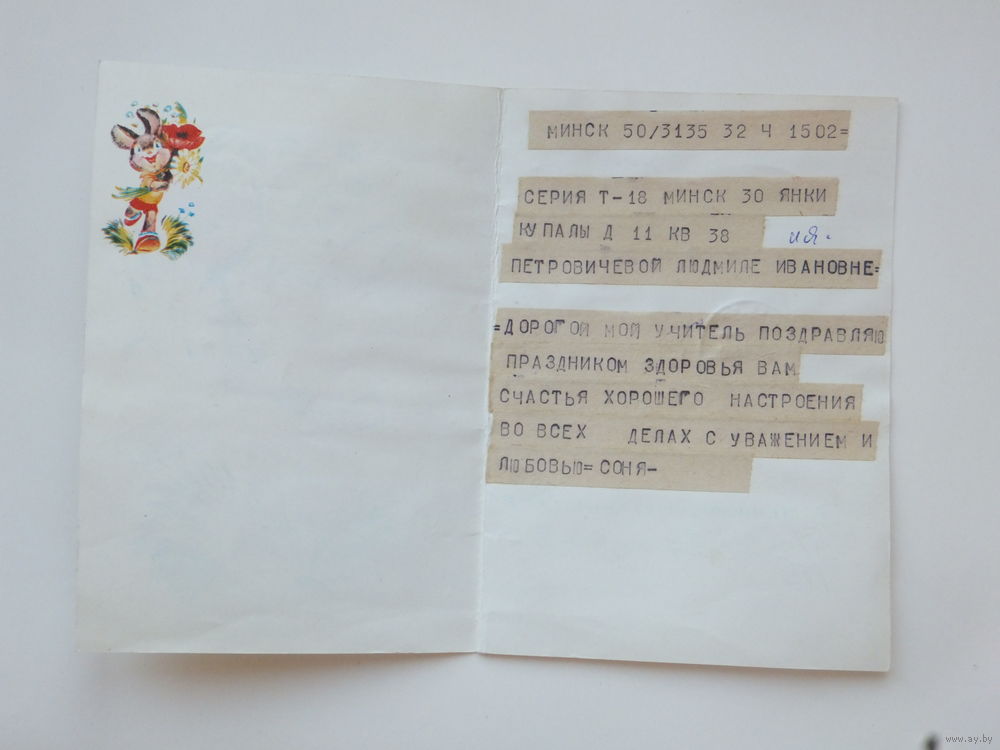 МИНСК 50/3135 32 Ч 1502=
СЕРИЯ Т-18 МИНСК 30 ЯНКИ
КУПАЛЫ Д 11 КВ 38
ПЕТРОВИЧЕВОЙ ЛЮДМИЛЕ ИВАНОВНЕ=
=ДОРОГОЙ МОЙ УЧИТЕЛЬ ПОЗДРАВЛЯЮ
ПРАЗДНИКОМ ЗДОРОВЬЯ ВАМ
СЧАСТЬЯ ХОРОШЕГО НАСТРОЕНИЯ
ВО ВСЕХ ДЕЛАХ С УВАЖЕНИЕМ И
ЛЮБОВЬЮ= СОНЯ-
www.ay.by